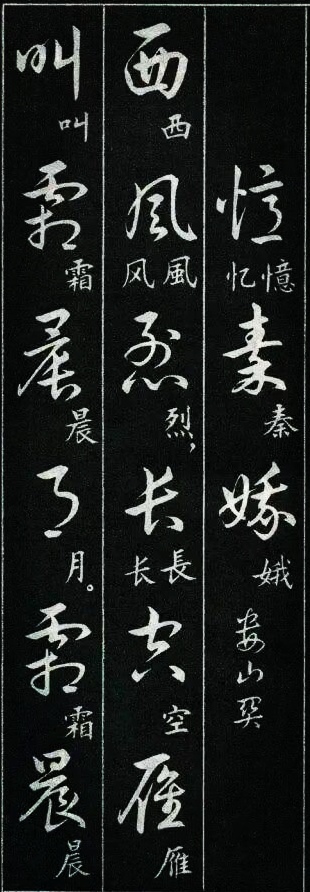 憶 忆憶 秦 秦 娥 娥 娄山关
西 西 风 风風 烈 烈， 长 长長 空 空 雁 雁
叫 叫 霜 霜 晨 晨 月 月。 霜 霜 晨 晨